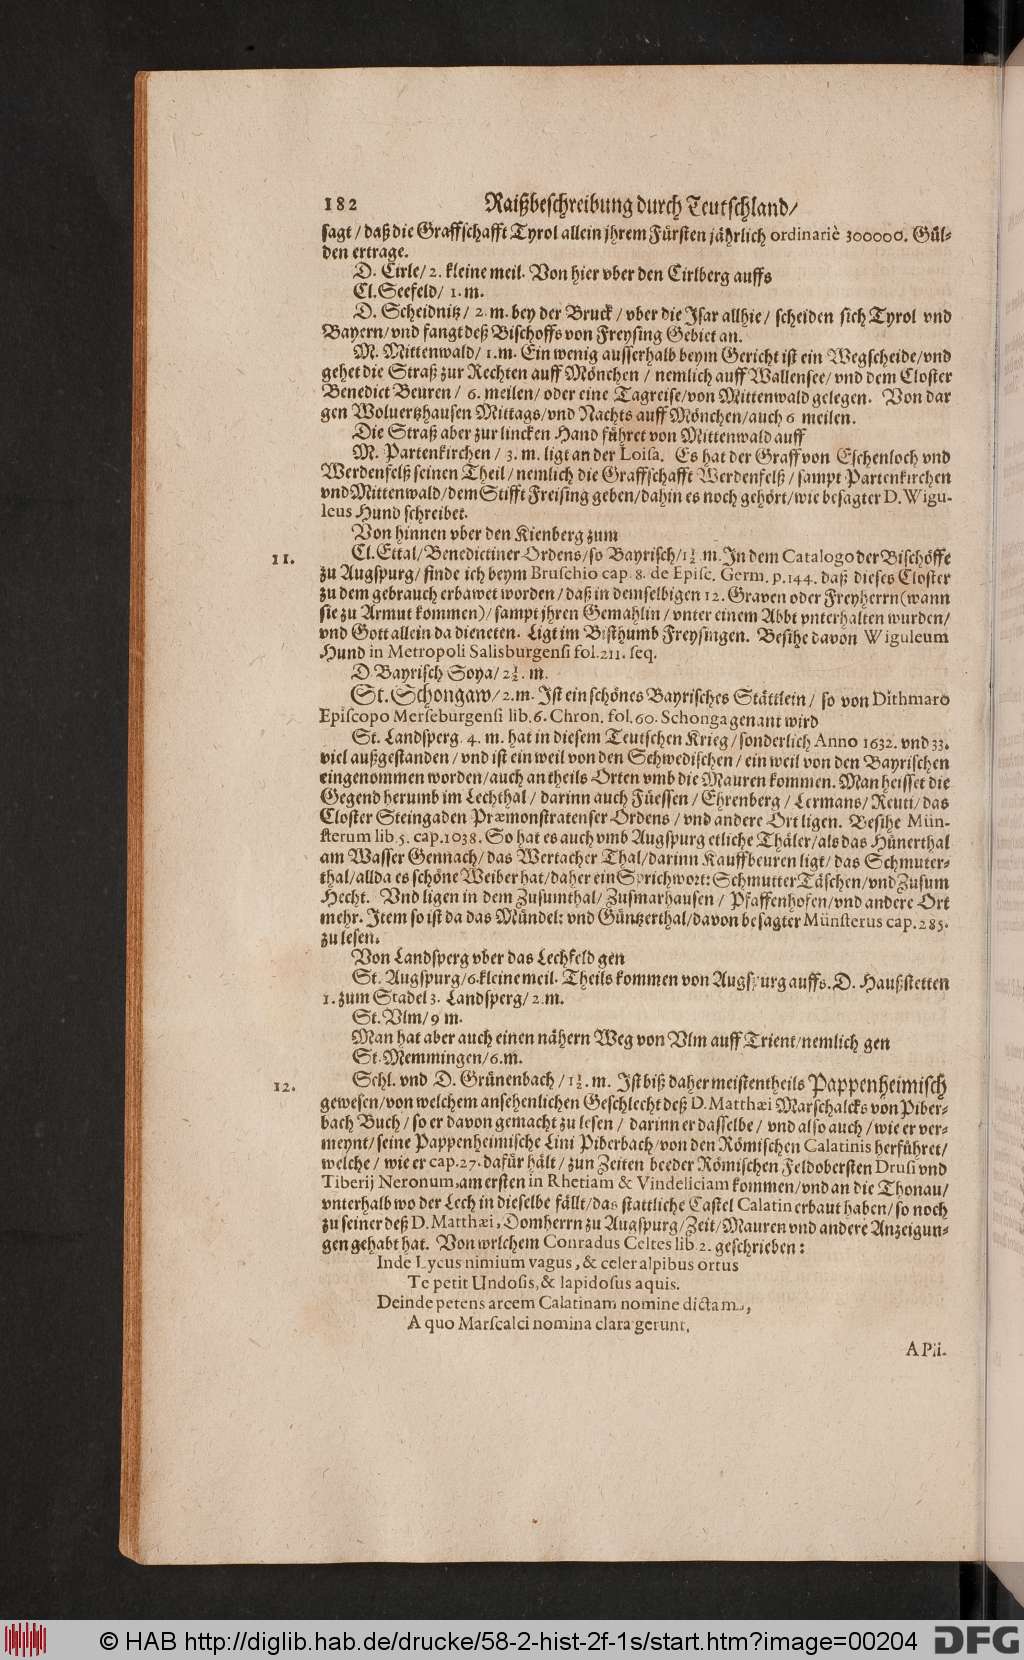 182 Raißbeschreibung durch Teutschland/
sagt / daß die Graffschafft Tyrol allein jhrem Fürsten jährlich ordinariè 300000. Gül-
den ertrage.
D. Cirle/ 2. kleine meil. Von hier vber den Cirlberg auffs
Cl. Seefeld/ 1. m.
D. Scheidnitz/ 2. m. bey der Bruck / vber die Isar allhie/ scheiden sich Tyrol vnd
Bayern/ vnd fangt deß Bischoffs von Freysing Gebiet an.
M. Mittenwald/ 1. m. Ein wenig ausserhalb beym Gericht ist ein Wegscheide/ vnd
gehet die Straß zur Rechten auff Mönchen / nemlich auff Wallensee/ vnd dem Closter
Benedict Beuren / 6. meilen/ oder eine Tagreise/ von Mittenwald gelegen. Von dar
gen Woluertzhausen Mittags/ vnd Nachts auff Mönchen/ auch 6 meilen.
Die Straß aber zur lincken Hand führet von Mittenwald auff
M. Partenkirchen / 3. m. ligt an der Loisa. Es hat der Graff von Eschenloch vnd
Werdenfelß seinen Theil/ nemlich die Graffschafft Werdenfelß / sampt Partenkirchen
vnd Mittenwald/ dem Stifft Freising geben/ dahin es noch gehört/ wie besagter D. Wigu-
leus Hund schreibet.
Von hinnen vber den Kienberg zum
11. Cl. Ettal/ Benedictiner Ordens/ so Bayrisch/ 1½. m. In dem Catalogo der Bischöffe
zu Augspurg/ finde ich beym Bruschio cap. 8. de Episc. Germ. p. 144. daß dieses Closter
zu dem gebrauch erbawet worden / daß in demselbigen 12. Graven oder Freyherrn (wann
sie zu Armut kommen) / sampt jhren Gemahlin / vnter einem Abbt vnterhalten wurden/
vnd Gott allein da dieneten. Ligt im Bisthumb Freysingen. Besihe davon Wiguleum
Hund in Metropoli Salisburgensi fol. 211. seq.
D. Bayrisch Soya/ 2½. m.
St. Schongaw/ 2. m. Ist ein schönes Bayrisches Stättlein / so von Dithmaro
Episcopo Merseburgensi lib. 6. Chron. fol. 60. Schonga genant wird
St. Landsperg. 4. m. hat in diesem Teutschen Krieg / sonderlich Anno 1632. vnd 33.
viel außgestanden / vnd ist ein weil von den Schwedischen / ein weil von den Bayrischen
eingenommen worden/ auch an theils Orten vmb die Mauren kommen. Man heisset die
Gegend herumb im Lechthal / darinn auch Füessen / Ehrenberg / Lermans/ Reuti/ das
Closter Steingaden Præmonstratenser Ordens / vnd andere Ort ligen. Besihe Mün-
sterum lib. 5. cap. 1038. So hat es auch vmb Augspurg etliche Thäler/ als das Hünerthal
am Wasser Gennach/ das Wertacher Thal/ darinn Kauffbeuren ligt/ das Schmuter-
thal/ allda es schöne Weiber hat/ daher ein Sprichwort: Schmutter Täschen/ vnd Zusum
Hecht. Vnd ligen in dem Zusumthal/ Zusmarhausen / Pfaffenhofen/ vnd andere Ort
mehr. Item so ist da das Mündel: vnd Güntzerthal/ davon besagter Münsterus cap. 285.
zu lesen.
Von Landsperg vber das Lechfeld gen
St. Augspurg/ 6. kleine meil. Theils kommen von Augspurg auffs. D. Haußstetten
1. zum Stadel 3. Landsperg/ 2. m.
St. Vlm/ 9 m.
Man hat aber auch einen nähern Weg von Vlm auff Trient/ nemlich gen
St. Memmingen/ 6. m.
12. Schl. vnd D. Grünenbach / 1½. m. Ist biß daher meistentheils Pappenheimisch
gewesen/ von welchem ansehenlichen Geschlecht deß D. Matthæi Marschalcks von Piber-
bach Buch / so er davon gemacht zu lesen / darinn er dasselbe / vnd also auch / wie er ver-
meynt / seine Pappenheimische Lini Piberbach/ von den Römischen Calatinis herführet/
welche / wie er cap. 27. dafür hält / zun Zeiten beeder Römischen Feldobersten Drusi vnd
Tiberij Neronum, am ersten in Rhetiam & Vindeliciam kommen/ vnd an die Thonau/
vnterhalb wo der Lech in dieselbe fällt/ das stattliche Castel Calatin erbaut haben/ so noch
zu seiner deß D. Matthæi, Domherrn zu Augspurg/ Zeit/ Mauren vnd andere Anzeigun-
gen gehabt hat. Von wrlchem Conradus Celtes lib 2. geschrieben:
Inde Lycus nimium vagus, & celer alpibus ortus
Te petit Undosis, & lapidosus aquis.
Deinde petens arcem Calatinam nomine dictam,
A quo Marscalci nomina clara gerunt.
© HAB http://diglib.hab.de/drucke/58-2-hist-2f-1s/start.htm?image=00204 DFG